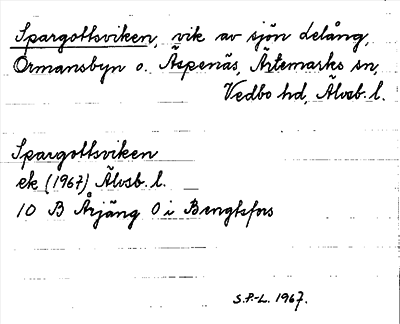 Spargottsviken, vik av sjön Lelång,
Ormansbyn o. Äspenäs, Ärtemarks sn,
Vedbo hd, Älvsb. l.
Spargottsviken
ek (1967) Älvsb. l.
10 B Årjäng O i Bengtsfors
S.P.-L. 1967.